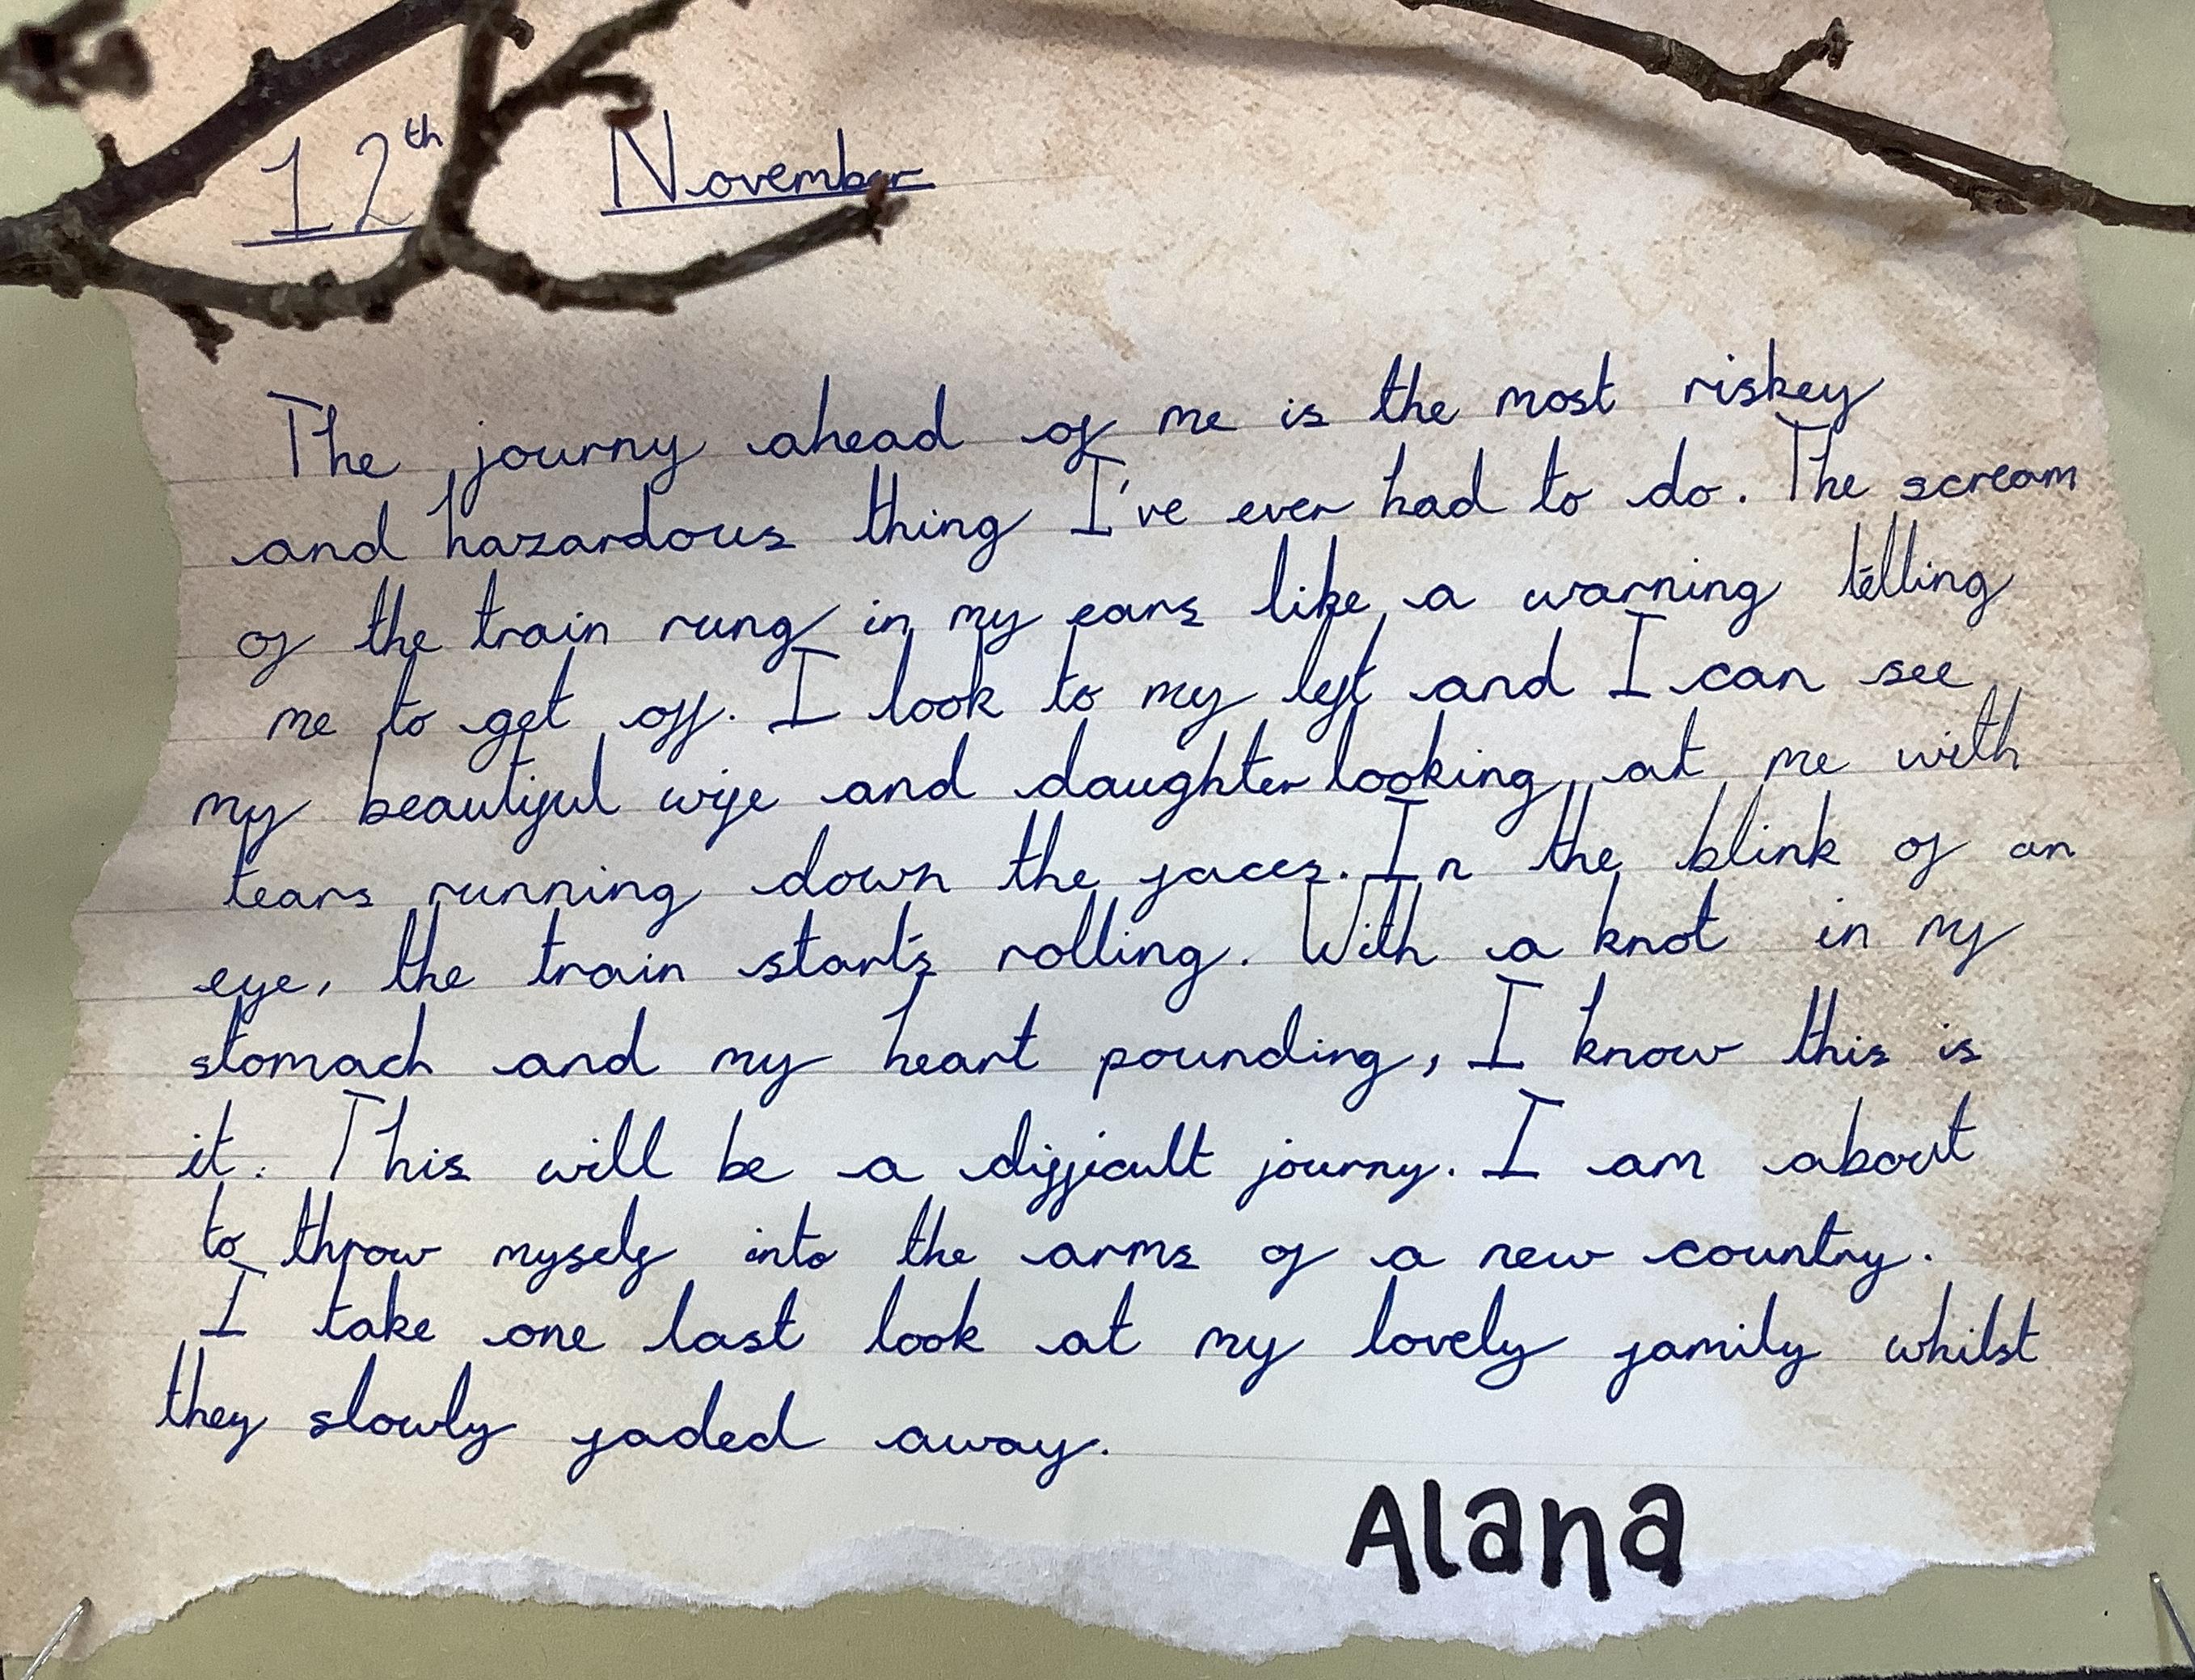 12th November
The journy ahead of me is the most riskey
and hazardous thing I've ever had to do. The scream
of the train rung in my ears like a warning telling
me to get off. I look to my left and I can see
my beautiful wife and daughter looking at me with
tears running down the faces. In the blink of an
eye, the train starts rolling. With a knot in my
stomach and my heart pounding, I know this is
it. This will be a difficult journy. I am about
to throw myself into the arms of a new country.
I take one last look at my lovely family whilst
they slowly faded away.
Alana